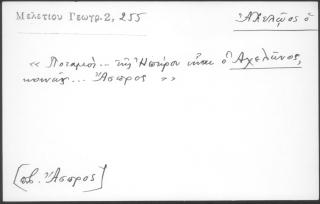 Μελετίου Γεωγρ. 2, 255
Ἀχελῷος ὁ
« Ποταμοί... τῆς Ἠπείρου εἶναι ὁ Ἀχελῶνος,
κοινῶς... Ἄσπρος »
[πβ. Ἄσπρος]